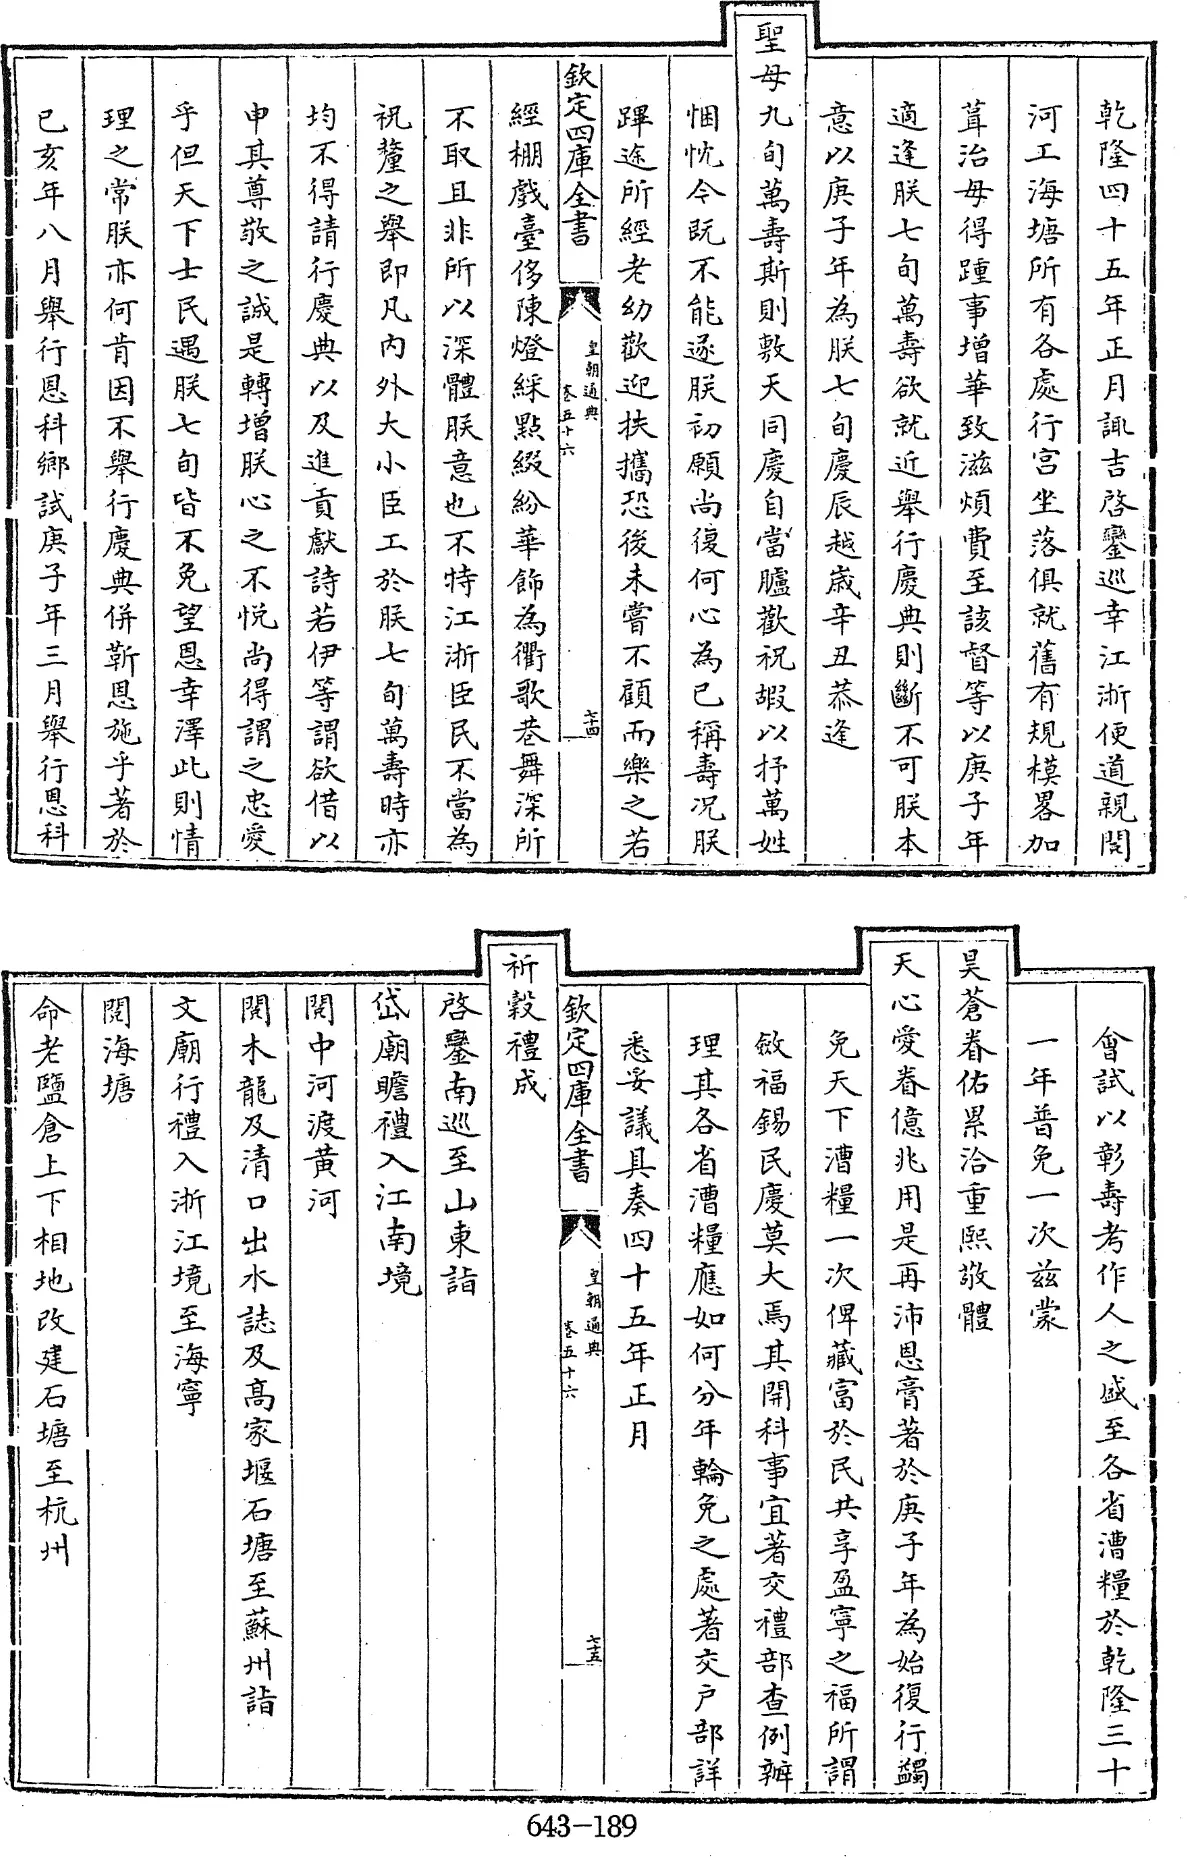 乾隆四十五年正月諏吉啓鑾巡幸江浙便道親閱
河工海塘所有各處行宫坐落俱就舊有規模畧加
葺治毋得踵事增華致滋煩費至該督等以庚子年
適逢朕七旬萬壽欲就近舉行慶典則斷不可朕本
意以庚子年為朕七旬慶辰越歲辛丑恭逢
聖母九旬萬壽斯則敷天同慶自當臚歡祝嘏以抒萬姓
悃忱今既不能遂朕初願尚復何心為已稱壽况朕
蹕途所經老幼歡迎扶攜恐後未嘗不顧而樂之若
欽定四庫全書
皇朝通典
卷五十六
七十四
經棚戲臺侈陳燈綵點綴紛華飾為衢歌巷舞深所
不取且非所以深體朕意也不特江浙臣民不當為
祝釐之舉即凡内外大小臣工於朕七旬萬壽時亦
均不得請行慶典以及進貢獻詩若伊等謂欲借以
申其尊敬之誠是轉增朕心之不悦尚得謂之忠愛
乎但天下士民遇朕七旬皆不免望恩幸澤此則情
理之常朕亦何肯因不舉行慶典併靳恩施乎著於
已亥年八月舉行恩科鄉試庚子年三月舉行恩科
會試以彰壽考作人之盛至各省漕糧於乾隆三十
一年普免一次兹蒙
昊蒼眷佑累洽重熙敬體
天心愛眷億兆用是再沛恩膏著於庚子年為始復行蠲
免天下漕糧一次俾藏富於民共享盈寧之福所謂
斂福錫民慶莫大焉其開科事宜著交禮部查例辦
理其各省漕糧應如何分年輪免之處著交户部詳
悉妥議具奏四十五年正月
欽定四庫全書
皇朝通典
卷五十六
七十五
祈穀禮成
啓鑾南巡至山東詣
岱廟瞻禮入江南境
閱中河渡黄河
閱木龍及清口出水誌及高家堰石塘至蘇州詣
文廟行禮入浙江境至海寧
閱海塘
命老鹽倉上下相地改建石塘至杭州
643-189